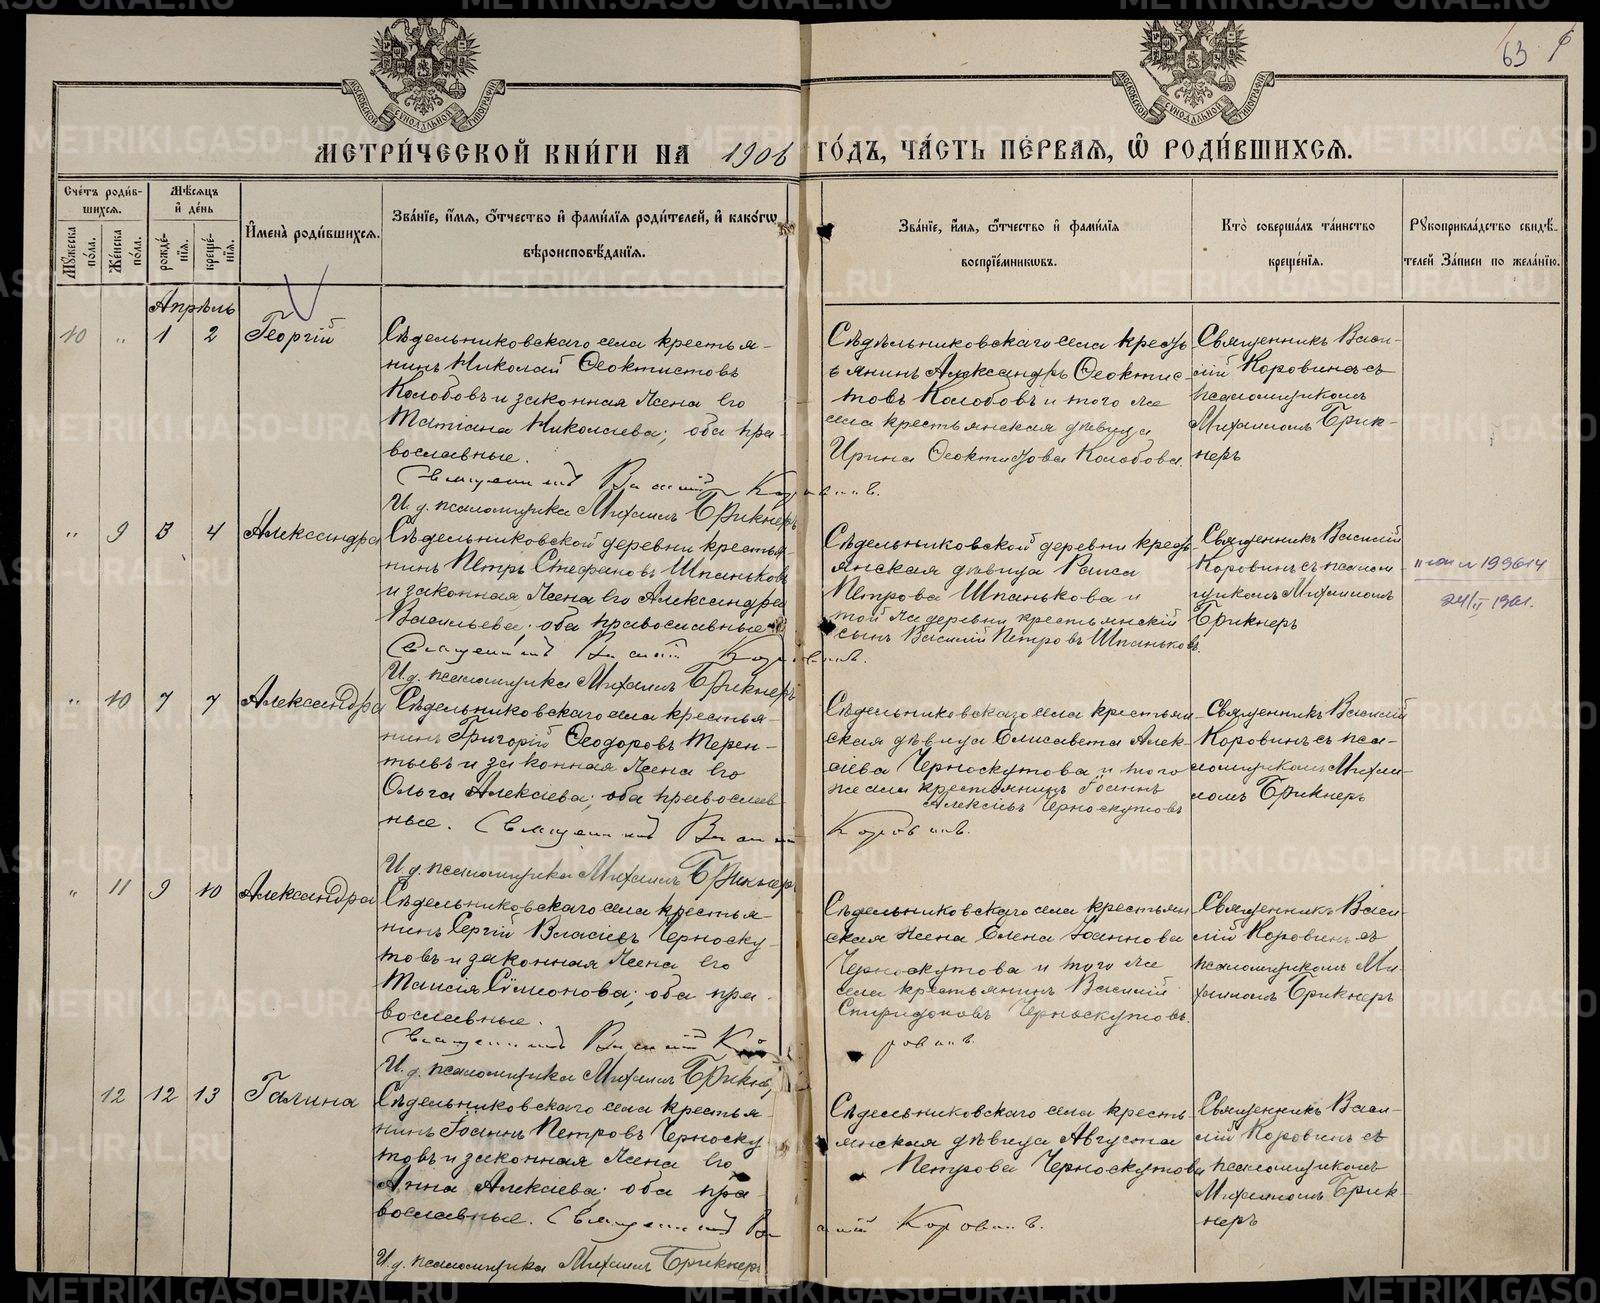 63
МЕТРИ́ЧЕСКОЙ КНИ́ГИ НА 1906 ГО́ДЪ, ЧА́СТЬ ПЕ́РВАЯ, Ѽ РОДИ́ВШИХСЯ.
Сче́тъ роди́в-
шихся.
Мꙋ́жеска по́ла.
Же́нска по́ла.
Мѣ́сяцъ
и де́нь
рожде́-
нїя.
креще́-
нїя.
Имена̀ роди́вшихся.
Зва́нїе, и́мя, ѻ́тчество и фами́лїя роди́телей, и како́гѡ
вѣроисповѣ́данїя.
Зва́нїе, и́мя, ѻ́тчество и фами́лїя
воспрїе́мникѡвъ.
Кто̀ соверша́лъ та́инство
креще́нїя.
Рꙋкоприкла́дство свидѣ́-
телей за́писи по жела́нїю.
Апрѣль
10 " 1 2 Георгій
Сѣдельниковскаго села крестья-
нинъ Николай Ѳеоктистовъ
Колобовъ и законная жена его
Татіана Николаева; оба пра-
вославные.
Священникъ Василій Коровинъ.
И. д. псаломщика Михаилъ Брикнеръ
Сѣдельниковскаго села кресть
янинъ Александръ Ѳеоктис-
товъ Колобовъ и того же
села крестьянская дѣвица
Ирина Ѳеоктистова Колобова.
Священникъ Васи-
лій Коровинъ съ
псаломщикомъ
Михаиломъ Брик-
неръ
" 9 3 4 Александра
Сѣдельниковской деревни крестья-
нинъ Петръ Стефановъ Шпаньковъ
и законная жена его Александра
Васильева; оба православные.
Священникъ Василій Коровинъ.
И. д. псаломщика Михаилъ Брикнеръ
Сѣдельниковской деревни кресть-
янская дѣвица Раиса
Петрова Шпанькова и
той же деревни крестьянскій
сынъ Василій Петровъ Шпаньковъ.
Священникъ Василій
Коровинъ съ псалом-
щикомъ Михаиломъ
Брикнеръ
" 10 7 7 Александра
Сѣдельниковскаго села крестья-
нинъ Григорій Ѳеодоровъ Терен-
тьевъ и законная жена его
Ольга Алексѣева; оба православ-
ные. Священникъ Василій Коровинъ.
И. д. псаломщика Михаилъ Брикнеръ
Сѣдельниковскаго села крестьян-
ская дѣвица Елисавета Алек-
сѣева Черноскутова и того
же села крестьянинъ Іоаннъ
Алексѣевъ Черноскутовъ
Священникъ Василій
Коровинъ съ пса-
ломщикомъ Михаи-
ломъ Брикнеръ
" 11 9 10 Александра
Сѣдельниковскаго села крестья-
нинъ Сергій Власіевъ Черноску-
товъ и законная жена его
Таисія Сѵмеонова; оба пра-
вославные.
Священникъ Василій Коровинъ.
И. д. псаломщика Михаилъ Брикнеръ
Сѣдельниковскаго села крестьян-
ская жена Елена Іоаннова
Черноскутова и того же
села крестьянинъ Василій
Спиридоновъ Черноскутовъ.
Священникъ Васи-
лій Коровинъ съ
псаломщикомъ Ми-
хаиломъ Брикнеръ
12 12 13 Галина
Сѣдельниковскаго села крестья-
нинъ Іоаннъ Петровъ Черноску-
товъ и законная жена его
Анна Алексѣева; оба пра-
вославные. Священникъ Василій Коровинъ.
И. д. псаломщика Михаилъ Брикнеръ
Сѣдельниковскаго села кресть-
янская дѣвица Августа
Петрова Черноскутова
Священникъ Васи-
лій Коровинъ съ
псаломщикомъ
Михаиломъ Брик-
неръ
METRIKI.GASO-URAL.RU